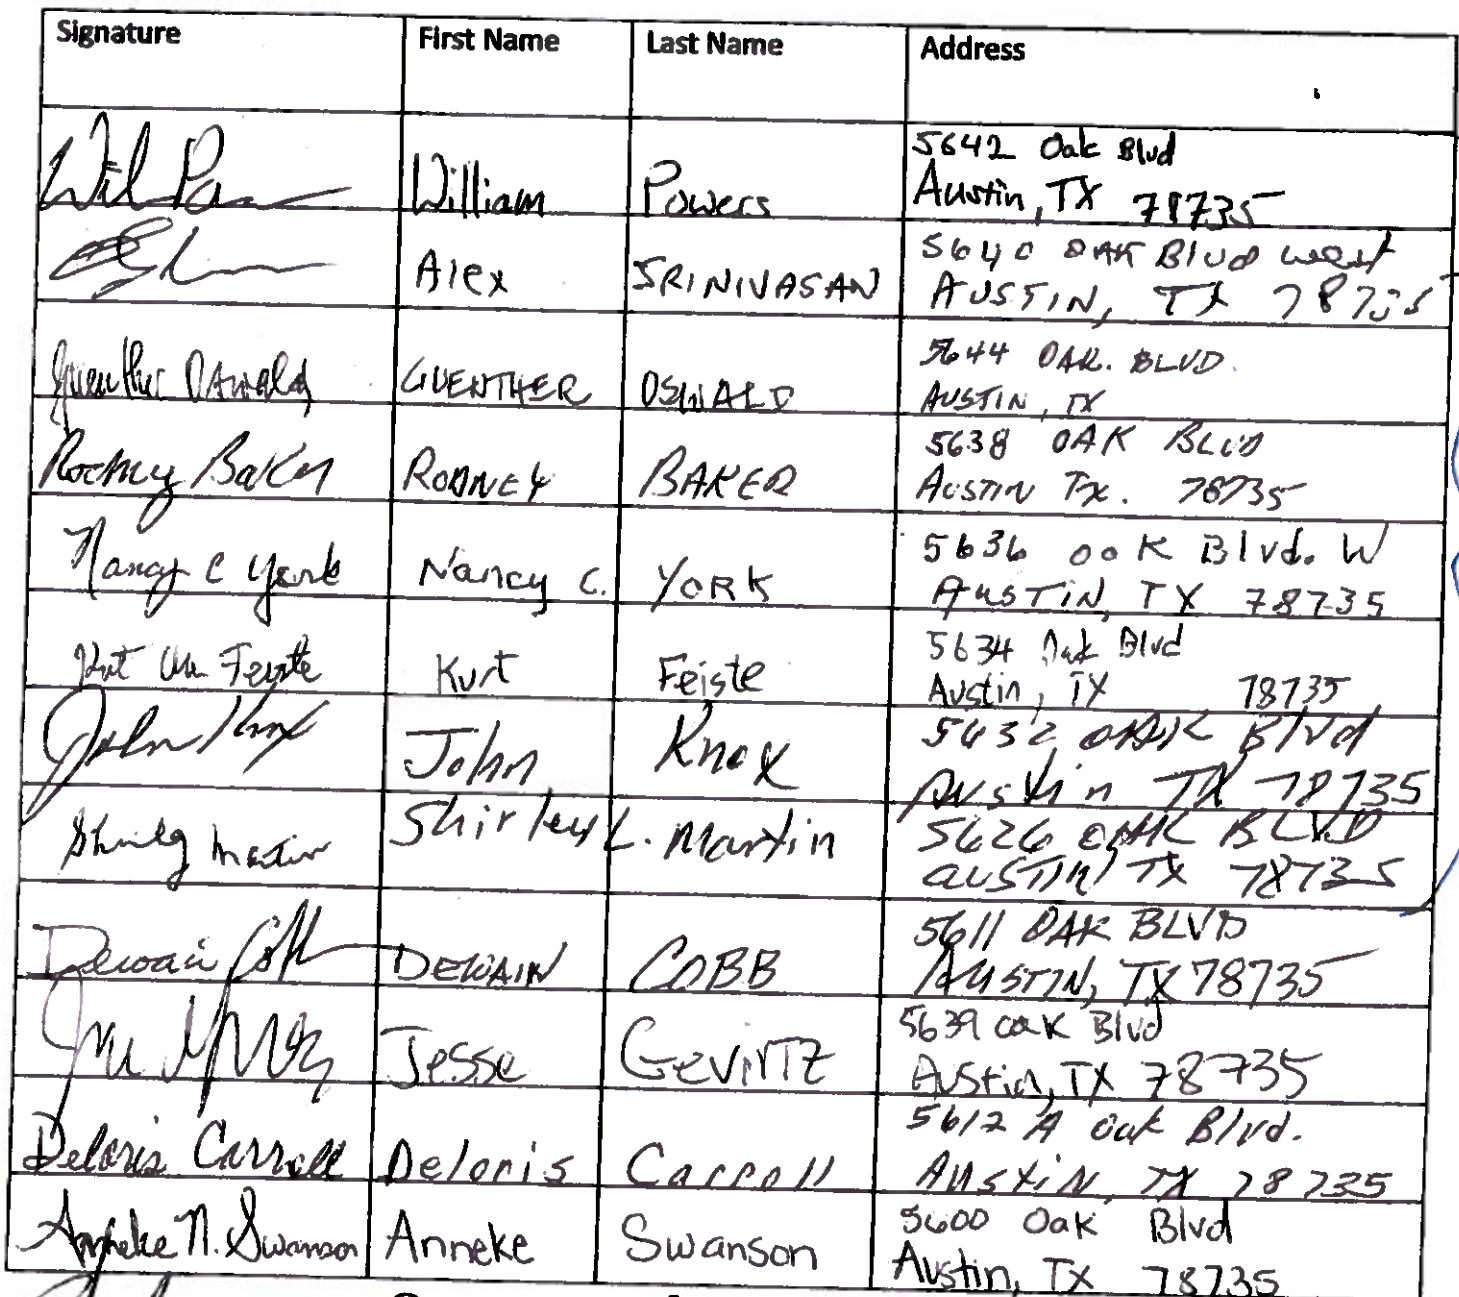 Signature First Name Last Name Address
Wil Po William Powers 5642 Oak Blvd
Austin, TX 78735
Alex SRINIVASAN 5640 OAK Blvd west
AUSTIN, TX 78735
Guenther Oswald GUENTHER OSWALD 5644 OAK. BLVD.
AUSTIN, TX
Rodney Baker RODNEY BAKER 5638 OAK BLVD
AUSTIN TX. 78735
Nancy C York Nancy C. YORK 5636 oak Blvd. W
AUSTIN, TX 78735
Kurt Feiste Kurt Feiste 5634 Oak Blvd
Austin, TX 78735
John Knox John Knox 5632 OAK Blvd
Austin TX 78735
Shirley Martin Shirley L. Martin 5626 OAK BLVD
AUSTIN TX 78735
Dewain Cobb DEWAIN COBB 5611 OAK BLVD
AUSTIN, TX 78735
Jesse GEVIRTZ 5639 oak Blvd
Austin, TX 78735
Deloris Carroll Deloris Carroll 5612 A Oak Blvd.
Austin, TX 78735
Anneke N. Swanson Anneke Swanson 5600 Oak Blvd
Austin, TX 78735